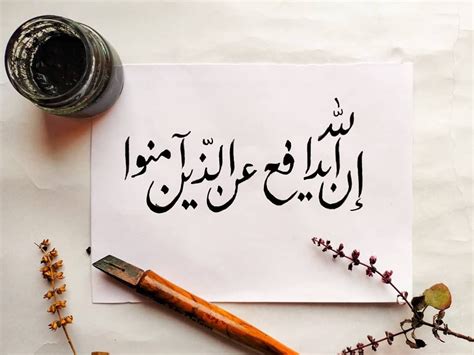 إن الله يدافع عن الذّين آمنوا